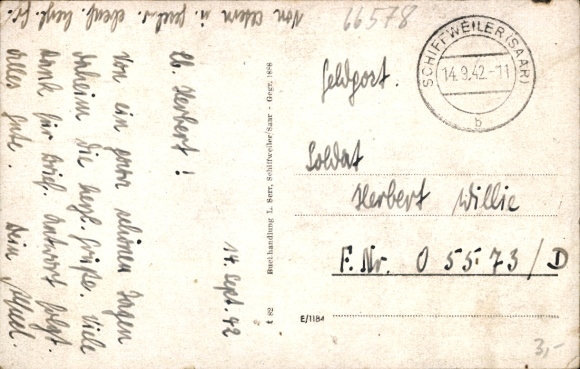 Von Eltern u. Geschw. ebenf. herzl. Gr.
14. Sept. 42
Lb. Herbert!
Von ein paar schönen Tagen
daheim die herzl. Grüße. Viele
Dank für Brief. Antwort folgt.
Alles gute. Dein
t 82 Buchhandlung L. Serr, Schiffweiler/Saar - Gegr. 1888
66578
SCHIFFWEILER (SAAR)
14.9.42.-11
b
Feldpost.
Soldat
Herbert Willie
F. Nr. 05573/D
E/1181
3,-